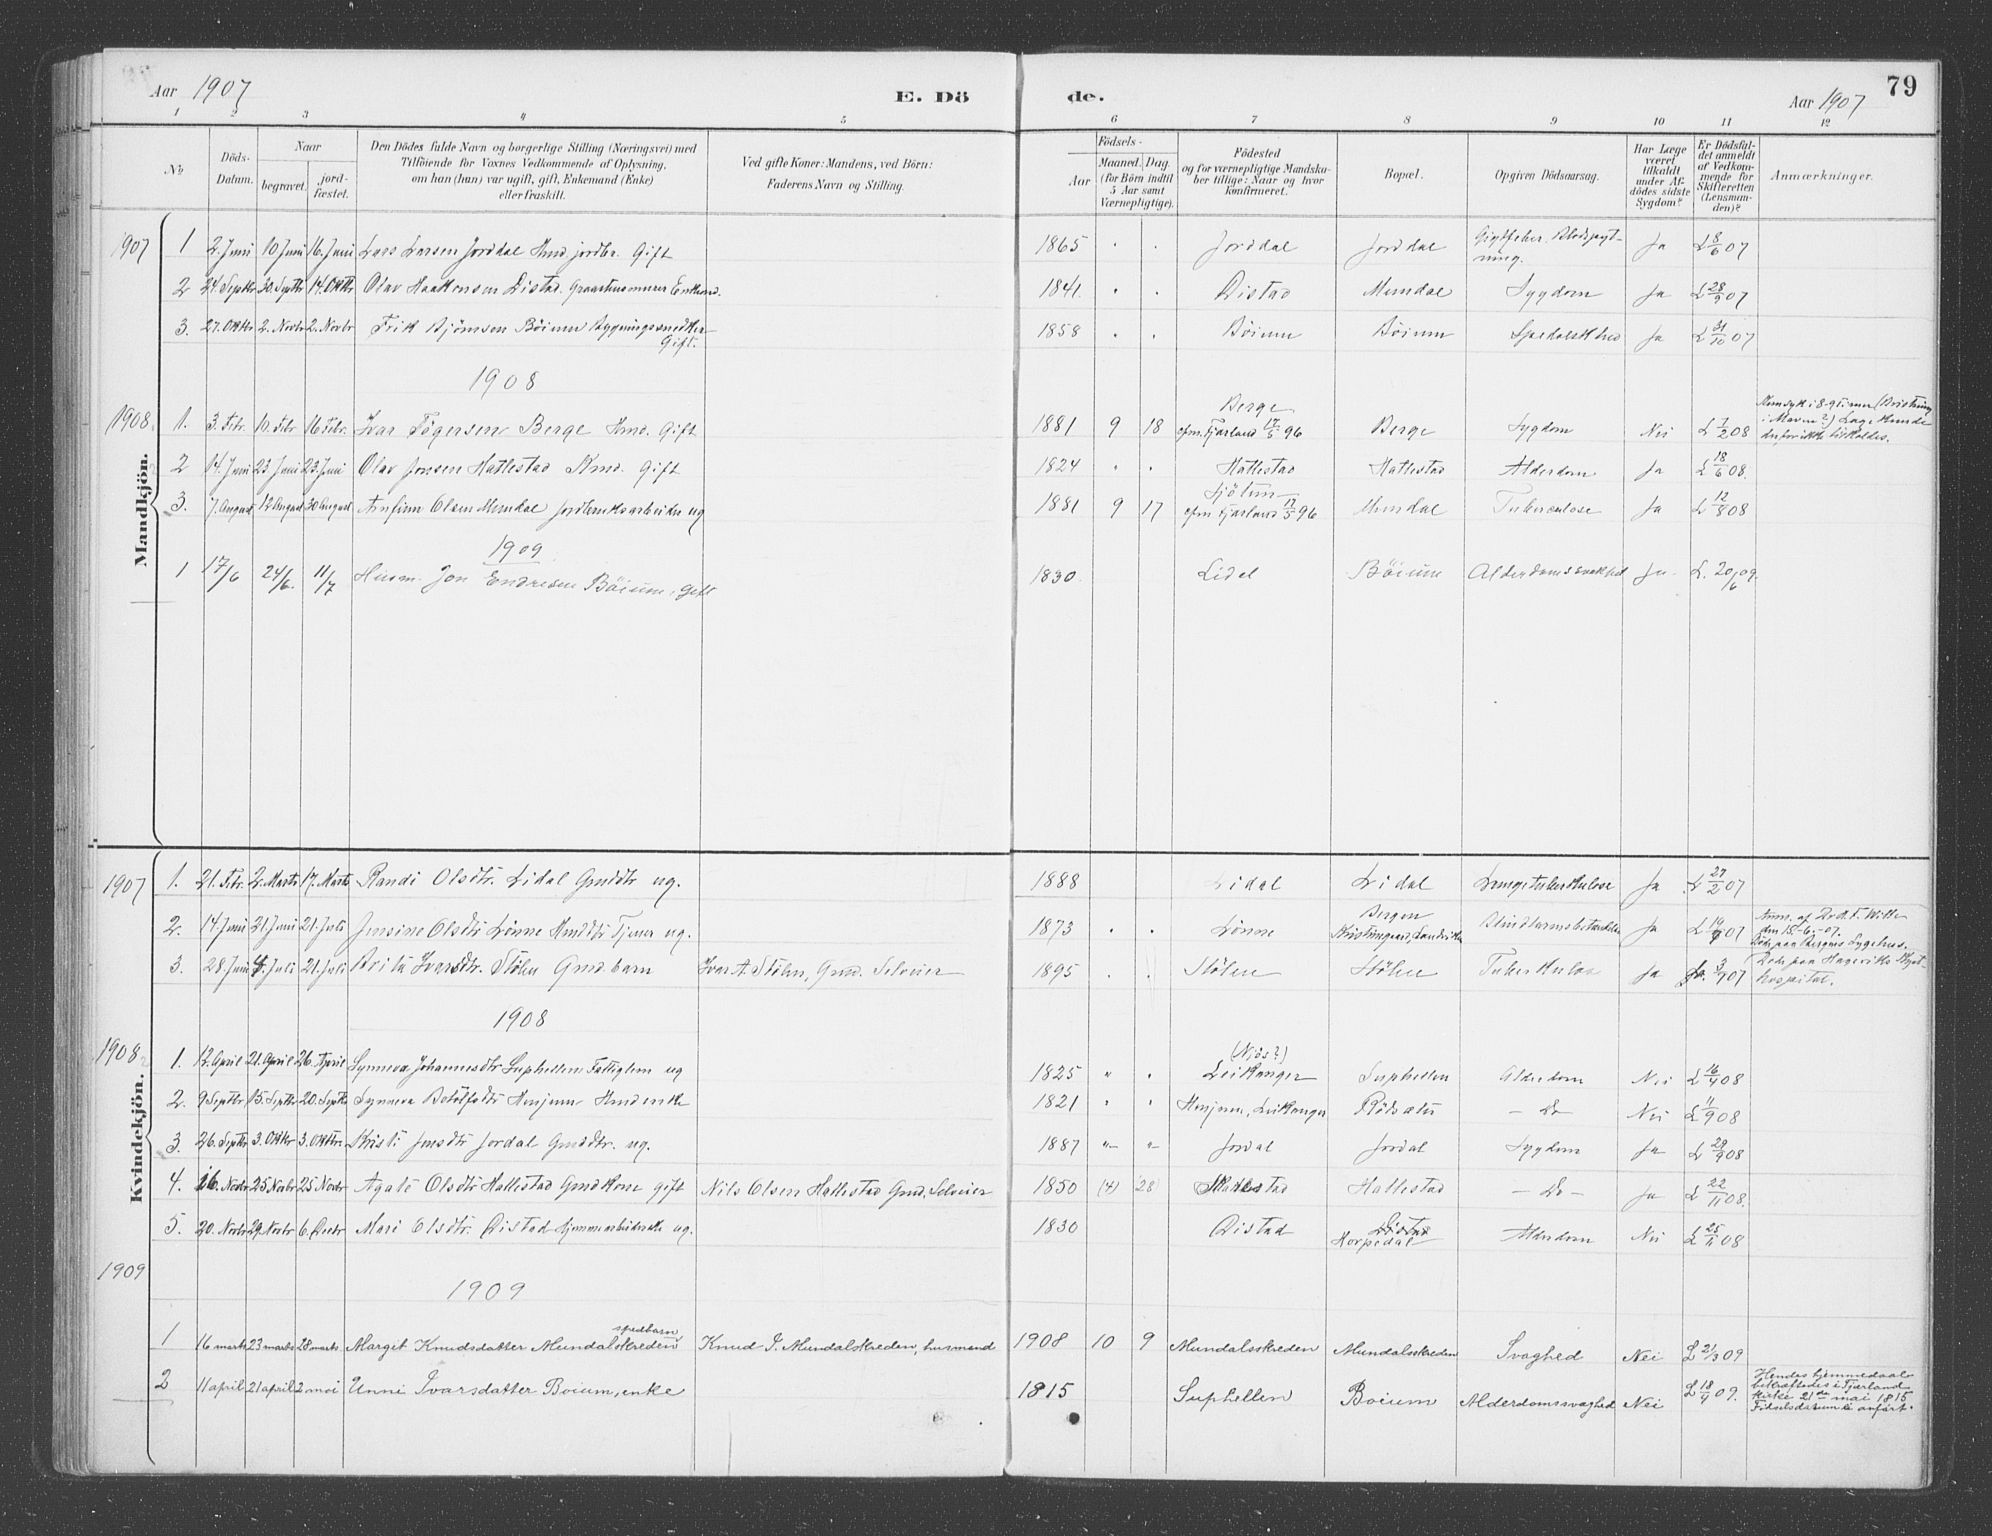 Aar 1907 E. Dö de. Aar 1907 79
1 2 3 4 5 6 7 8 9 10 11 12
No Döds-Datum. Naar begravet. jord-fæstet. Den Dödes fulde Navn og borgerlige Stilling (Næringsvei) med Tilföiende for Voxnes Vedkommende af Oplysning, om han (hun) var ugift, gift, Enkemand (Enke) eller fraskilt. Ved gifte Koner: Mandens, ved Börn: Faderens Navn og Stilling. Födsels- Aar Maaned. Dag. (for Börn indtil 5 Aar samt Værnepligtige). Födested og for værnepligtige Mandska-ber tillige: Naar og hvor konfirmeret. Bopæl. Opgiven Dödsaarsag. Har Læge været tilkaldt under Af-dödes sidste Sygdom? Er Dödsfal-det anmeldt af Vedkom-mende for Skifteretten (Lensman-den)? Anmærkninger.
Mandkjön.
1907 1 2. Juni 10 Juni 16. Juni Lars Larsen Jorddal Kmd. jordbr. Gift 1865 Jorddal Jorddal Gigtfeber. Blodspyt-ning. Ja L 8/6 07
2 24. Septbr 30. Septbr 14. Oktbr Olav Haakonsen Distad. Graastensmurer Enkemd. 1841. Distad Mundal Sygdom Ja L 28/9 07
3. 27. Oktbr 2. Novbr 2. Novbr Erik Bjørnsen Böium Bygningssnedker Gift. 1858 Böium Böium Spedalskhed Ja L 31/10 07
1908
1908 1. 3. Febr. 10. Febr 16 Febr. Ivar Tögersen Berge Kmd. Gift 1881 9 18 Berge cfm. Fjærland 17/5 96 Berge Sygdom Nei L 7/2 08 Kun syk i 8-9 timer (Bristning i Maven?) Læge kunde derfor ikke tilkaldes.
2 14. Juni 23 Juni 23. Juni Olav Jonsen Hatlestad Kmd. Gift 1824 Hatlestad Hatlestad Alderdom Ja L 18/6 08.
3. 7. August 12 August 30 August Anfinn Olsen Mundal Jordbruksarbeider ug 1881 9 17 cfm. Fjærland 17/5 96 Mundal Tuberculose Ja L 12/8 08
1909
1 17/6 24/6. 11/7 Husm. Jon Endresen Böium, gift 1830 Lidal Böium Alderdomssvakhed Ja L. 20/6 09.
Kvindekjön.
1907 1. 21. Febr. 2. Marts 17. Marts Randi Olsdtr. Lidal Gmddtr ug. 1888 Lidal Lidal Lungetuberkulose Ja L 27/2 07
2. 14. Juni 21 Juni 21. Juli Jensine Olsdtr Lönne Kmddtr Tjener ug. 1873 Lönne Bergen Kristinegaard, Sandviken Blindtarmsbetændelse Ja L 19/6 07 Anm. af Dr. d. F. Witte dm 15-6-07. Död paa Bergens Sygehus.
3. 28. Juni 4. Juli 21. Juli Brita Ivarsdtr. Stöln Gmdbarn Ivar A. Stöln, Gmd. Selveier 1895 Stölen Stölen Tuberkulos Ja L 3/7 07 Död paa Hageviks Kyst-hospital.
1908
1908 1. 12. April 21. April 26. April Synneva Johannesdtr Suphellem Fattiglem ug 1825 (Njös?) Leikanger Suphellen Alderdom Nei L 16/4 08
2. 9 Septbr 15. Septbr 20. Septbr Synneva Botolfsdtr Henjum Kmdenke 1821 Henjum, Leikanger Rödsæter - Do - Nei L 11/9 08
3. 26. Septbr 3. Oktbr 3. Oktbr. Kristi Jensdtr Jordal Gmddtr. ug. 1887 Jordal Jordal Sygdom Ja L 29/9 08
4. 16. Novbr 25 Novbr 25 Novbr Agate Olsdtr Hatlestad Gmdkone gift Nils Olsen Hatlestad Gmd. Selveier 1850 (4) 28) Hatlestad - Do - Ja L 22/11 08.
5. 20. Novbr 29. Novbr 6. Decbr Mari Olsdtr. Distad hjemmearbeidende ug. 1830 Distad Distad Horpedal Alderdom Nei L 25/11 08
1909
1909 1 16 marts 23 marts 28 marts Margit Knudsdatter Mundalskreden spedbarn Knud I. Mundalskreden, husmand 1908 10 9 Mundalsskreden Mundalsskreden Svaghed Nei L 21/3 09
2 11 april 21 april 2 mai Unni Ivarsdatter Boium, enke 1815 Suphellen Boeium Alderdomssvaghed Nei L 18/4 09. Hendes hjemmedaab bekræftedes i Fjærland kirke 21de mai 1815 Födselsdatum ei anfört.